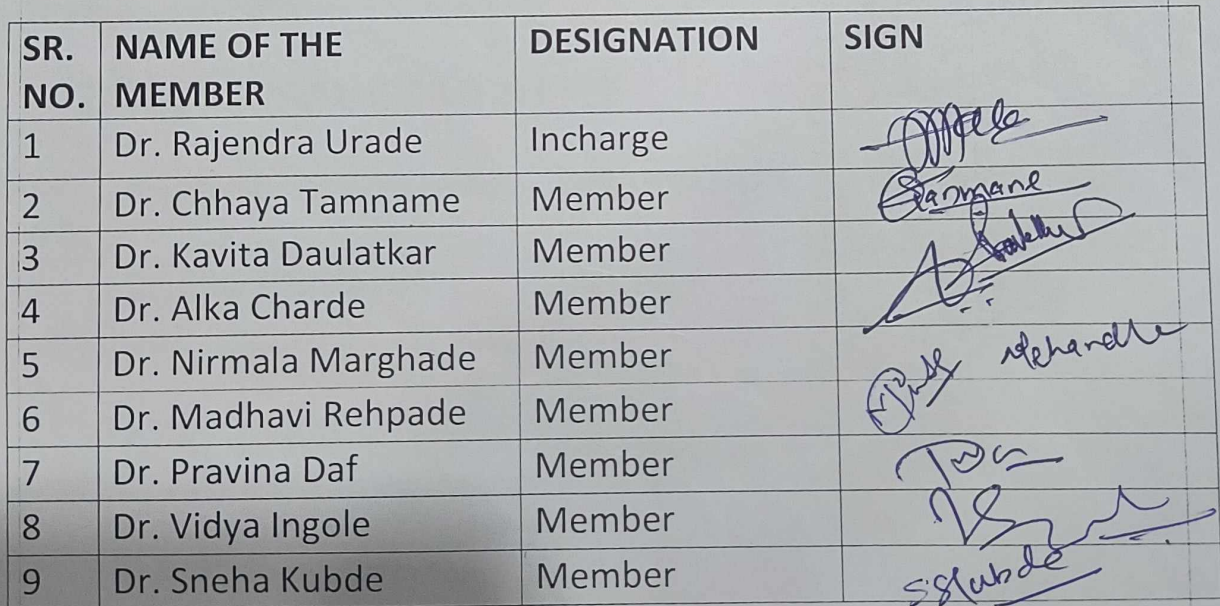 SR. NO. NAME OF THE MEMBER DESIGNATION SIGN
1 Dr. Rajendra Urade Incharge
2 Dr. Chhaya Tamname Member
3 Dr. Kavita Daulatkar Member
4 Dr. Alka Charde Member
5 Dr. Nirmala Marghade Member
6 Dr. Madhavi Rehpade Member
7 Dr. Pravina Daf Member
8 Dr. Vidya Ingole Member
9 Dr. Sneha Kubde Member